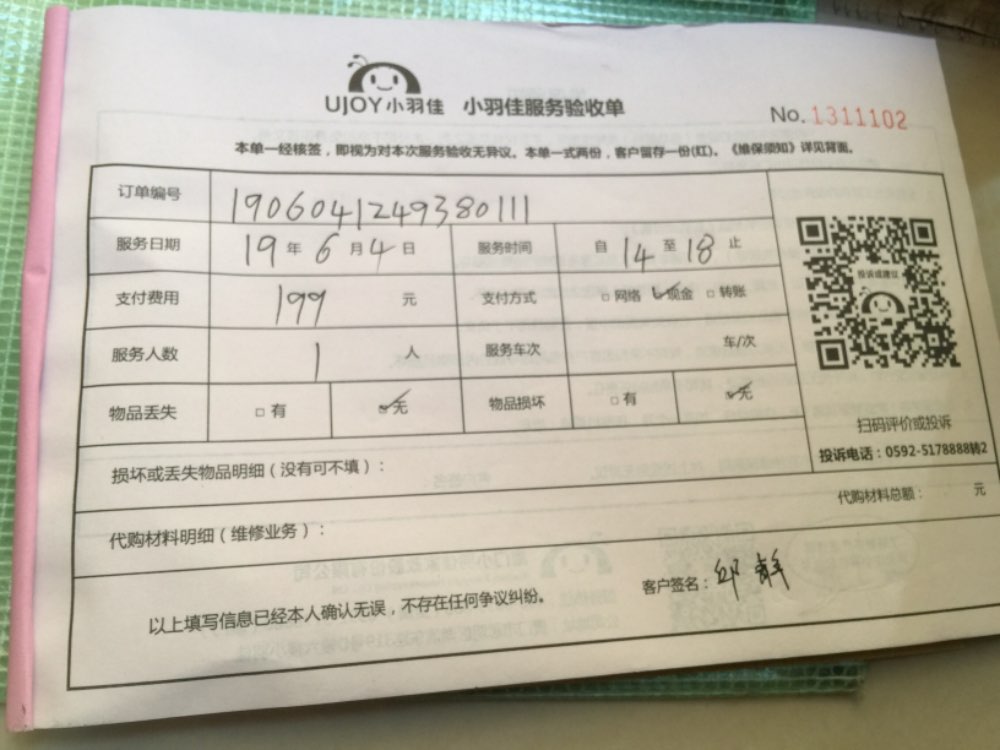 UJOY小羽佳 小羽佳服务验收单
No. 1311102
本单一经核签，即视为对本次服务验收无异议。本单一式两份，客户留存一份(红)。《维保须知》详见背面。
订单编号 1906041249380111
服务日期 19 年 6 月 4 日 服务时间 自 14 至 18 止
支付费用 199 元 支付方式 □网络 ☑现金 □转账
服务人数 1 人 服务车次 车/次
物品丢失 □有 ☑无 物品损坏 □有 ☑无
投诉或建议
扫码评价或投诉
投诉电话：0592-5178888转2
损坏或丢失物品明细（没有可不填）：
代购材料明细（维修业务）： 代购材料总额： 元
以上填写信息已经本人确认无误，不存在任何争议纠纷。 客户签名：邱静